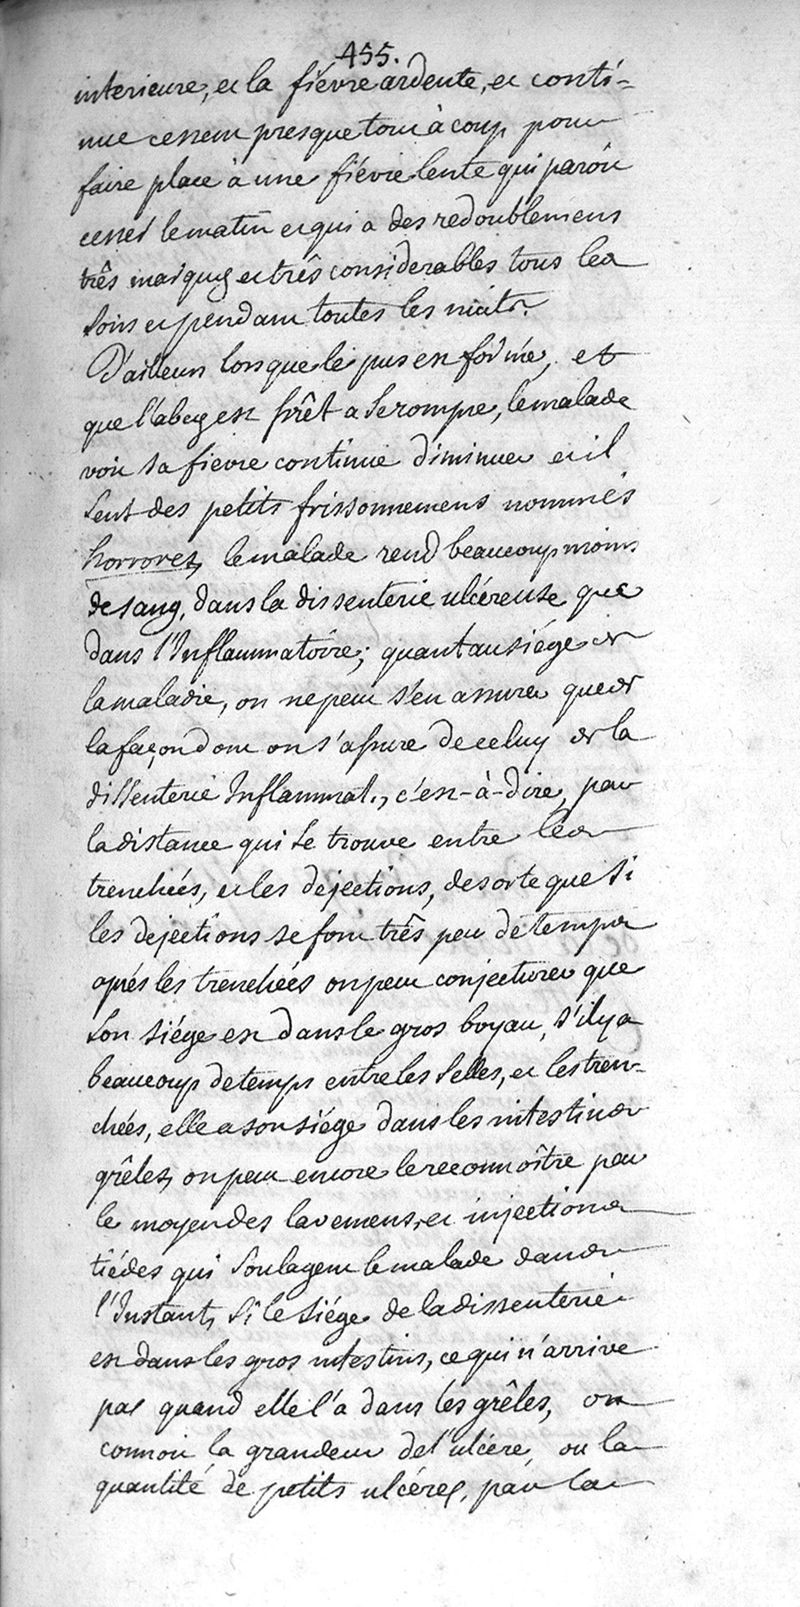 455.
interieure, et la fiévre ardente, et conti=
nue cessent presque tout à coup pour
faire place à une fiévre lente qui paroit
cesser le matin et qui a des redoublemens
três marqués et três considerables tous les
soirs et pendant toutes les nuits.
D'ailleurs lorsque le pus est formé, et
que l'abcès est prêt a se rompre, le malade
voit sa fievre continue diminuer et il
sent des petits frissonnemens nommés
horrores, le malade rend beaucoup moins
de sang, dans la dissenterie ulcéreuse que
dans l'Inflammatôire; quant au siége de
la maladie, on ne peut s'en assurer que de
la façon dont on s'assure de celuy de la
dissenterie Inflammat., c'est-à-dire, par
la distance qui se trouve entre les
trenchées, et les dejections, de sorte que si
les dejections se font três peu de temps
aprés les trenchées on peut conjecturer que
son siége est dans le gros boyau, s'il y a
beaucoup de temps entre les selles, et les tren-
chées, elle a son siége dans les intestins
grêles, on peut encore le reconnoître par
le moyen des lavemens, et injections
tiédes qui soulagent le malade dans
l'Instant, si le siége de la dissenterie
est dans les gros intestins, ce qui n'arrive
pas quand elle l'a dans les grêles, on
connoit la grandeur de l'ulcére, ou la
quantité de petits ulcéres, par la